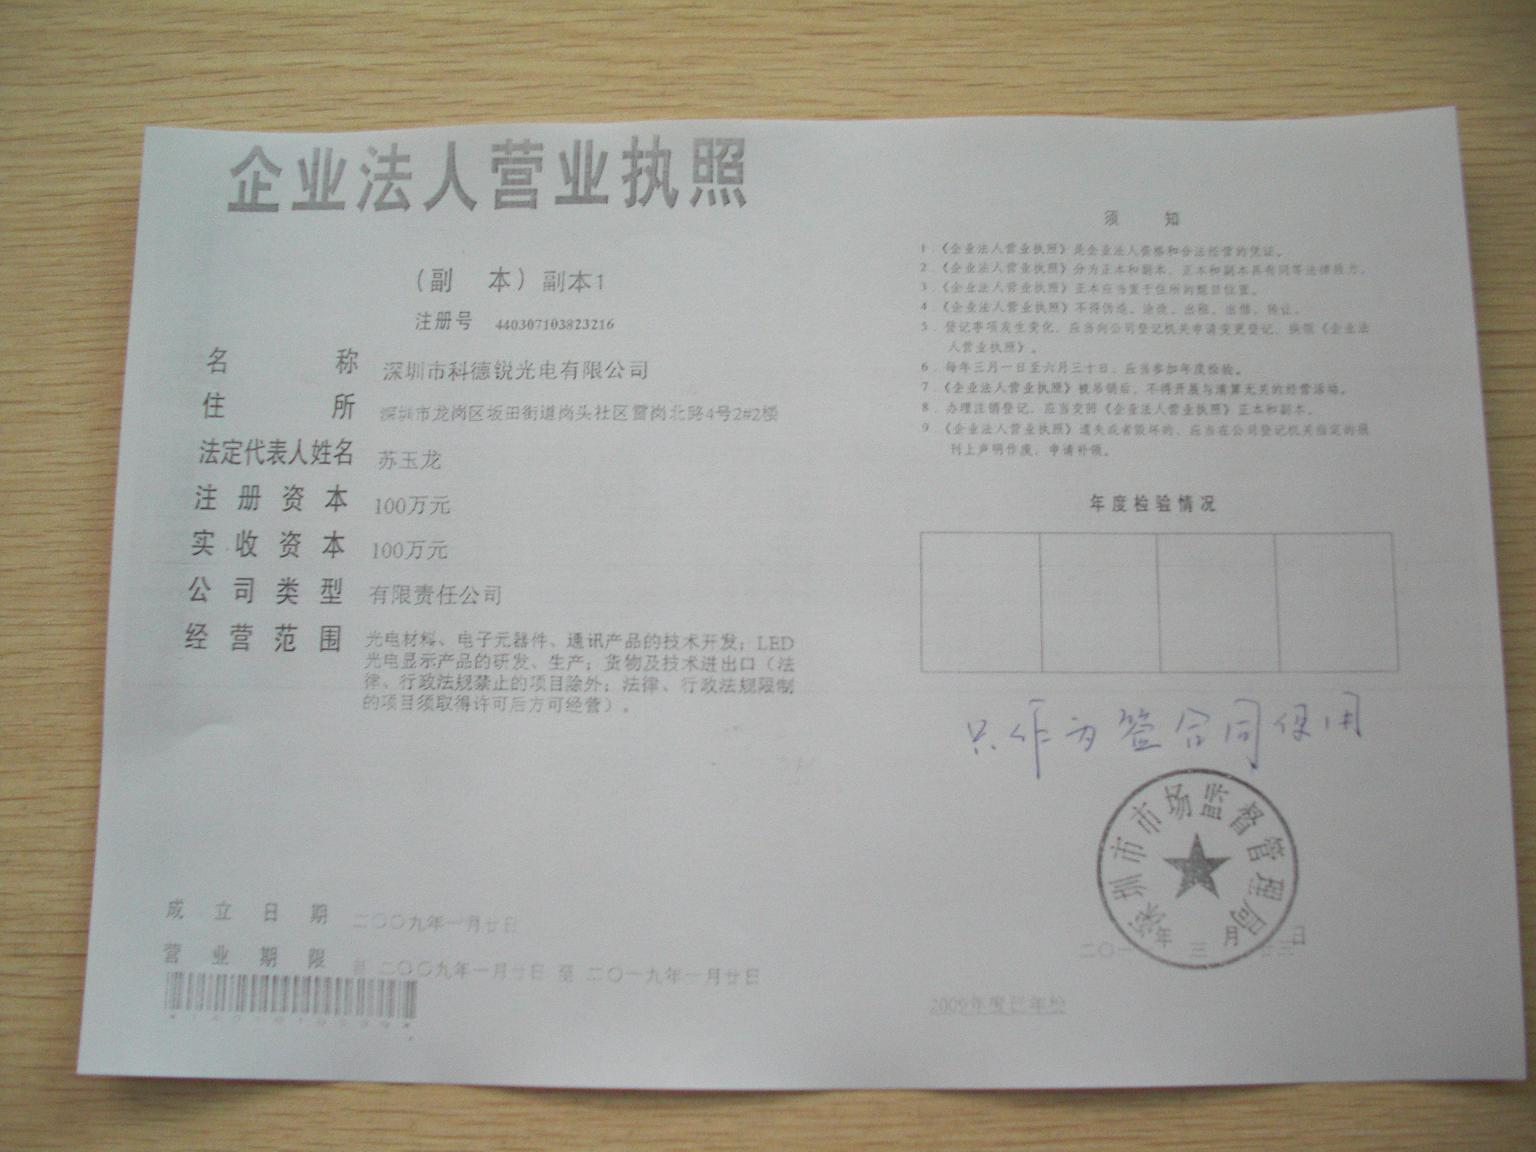 企业法人营业执照
（副 本）副本1
注册号 440307103823216
名称 深圳市科德锐光电有限公司
住所 深圳市龙岗区坂田街道岗头社区雪岗北路4号2#2楼
法定代表人姓名 苏玉龙
注册资本 100万元
实收资本 100万元
公司类型 有限责任公司
经营范围 光电材料、电子元器件、通讯产品的技术开发；LED
光电显示产品的研发、生产；货物及技术进出口（法
律、行政法规禁止的项目除外；法律、行政法规限制
的项目须取得许可后方可经营）。
成立日期 二〇〇九年一月廿日
营业期限 自 二〇〇九年一月廿日 至 二〇一九年一月廿日
须 知
1．《企业法人营业执照》是企业法人资格和合法经营的凭证。
2．《企业法人营业执照》分为正本和副本，正本和副本具有同等法律效力。
3．《企业法人营业执照》正本应当置于住所的醒目位置。
4．《企业法人营业执照》不得伪造、涂改、出租、出借、转让。
5．登记事项发生变化，应当向公司登记机关申请变更登记，换领《企业法
人营业执照》。
6．每年三月一日至六月三十日，应当参加年度检验。
7．《企业法人营业执照》被吊销后，不得开展与清算无关的经营活动。
8．办理注销登记，应当交回《企业法人营业执照》正本和副本。
9．《企业法人营业执照》遗失或者毁坏的，应当在公司登记机关指定的报
刊上声明作废，申请补领。
年度检验情况
只作为签合同使用
深圳市市场监督管理局
年 三 月 日
2009年度已年检